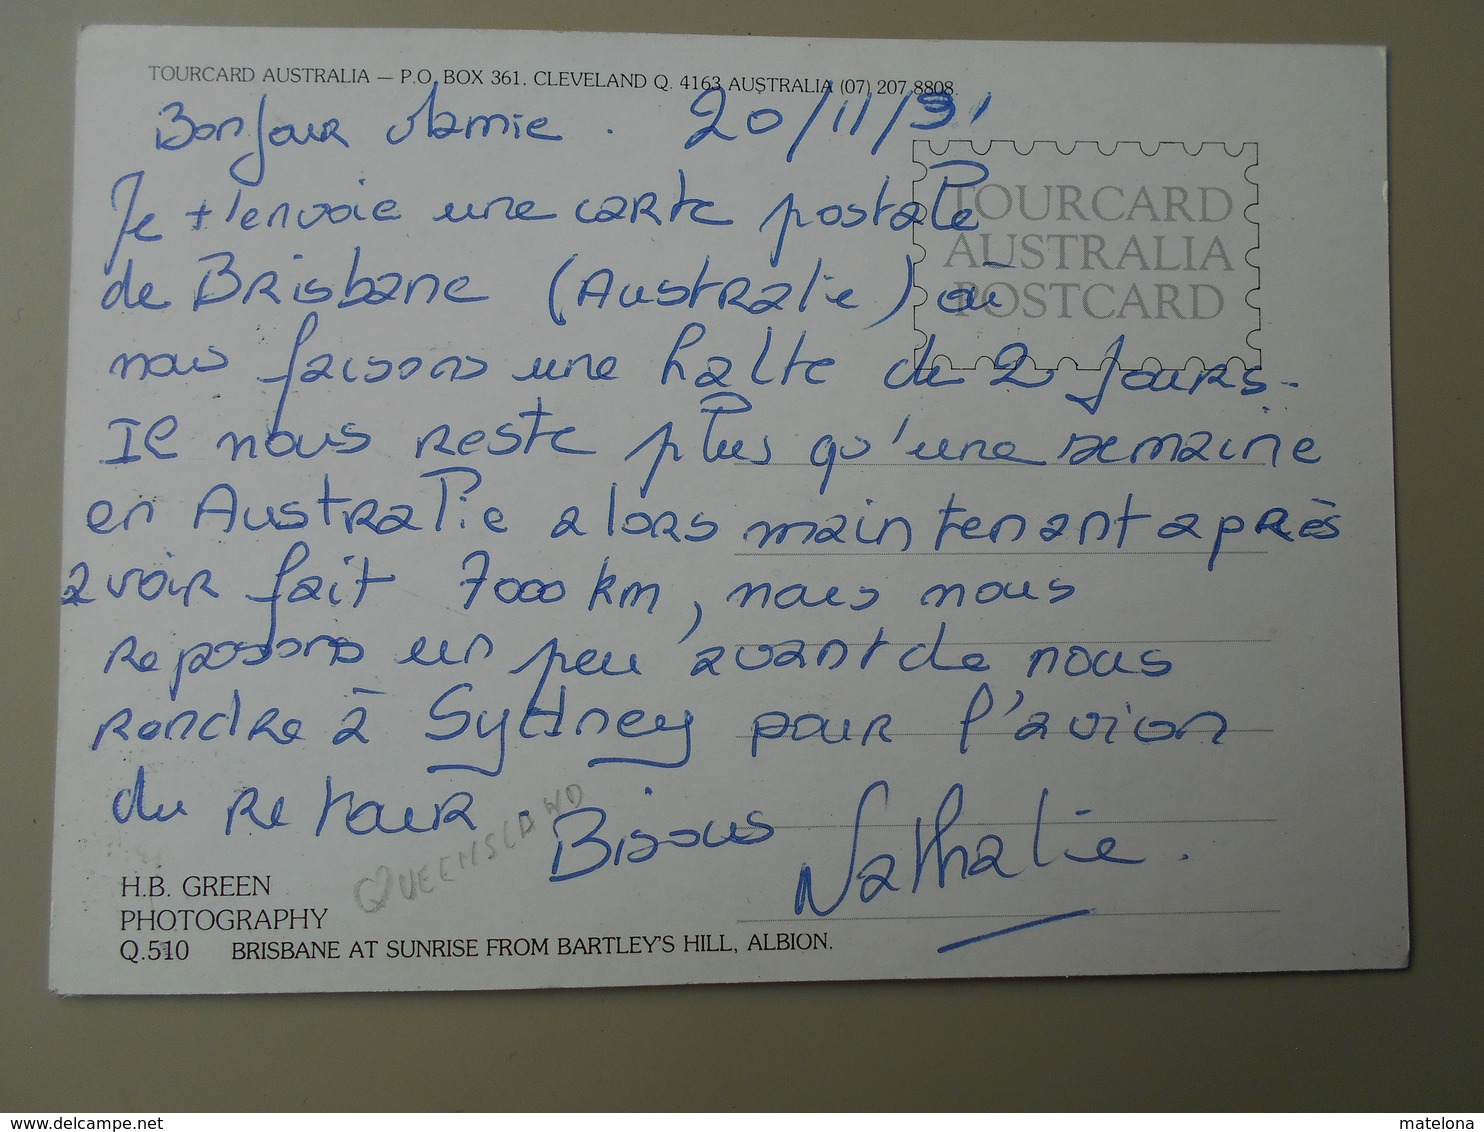 TOURCARD AUSTRALIA — P.O. BOX 361, CLEVELAND Q. 4163 AUSTRALIA (07) 207 8808.
Bonjour Mamie. 20/11/91
TOURCARD
AUSTRALIA
POSTCARD
Je t'envoie une carte postale
de Brisbane (Australie) où
nous faisons une halte de 2 jours.
Il nous reste plus qu'une semaine
en Australie alors maintenant après
avoir fait 7000 km, nous nous
reposons un peu avant de nous
rendre à Sydney pour l'avion
du retour. Bisous Nathalie.
QUEENSLAND
H.B. GREEN
PHOTOGRAPHY
Q.510 BRISBANE AT SUNRISE FROM BARTLEY'S HILL, ALBION.
www.delcampe.net
matelona